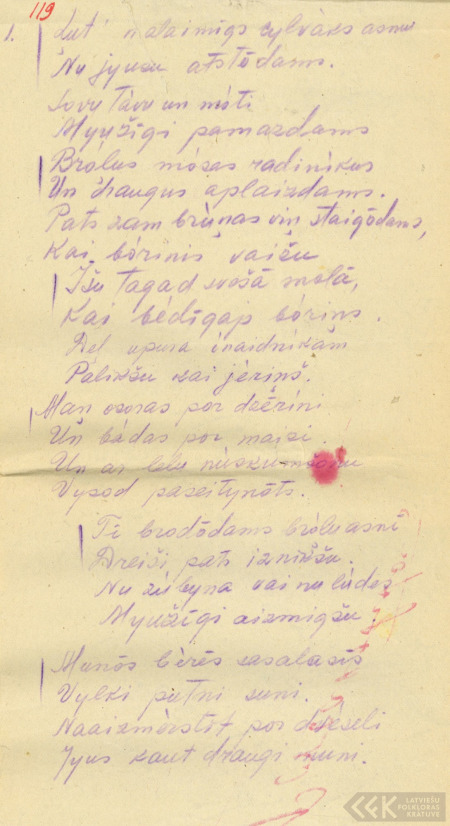 119
1. Ļut' nalaimīgs cylvāks asmu
Nu jyusu atstōdams.
Sovu tāvu un mōti
Myužīgi pamazdams
Brōļus mōsas radinīkus
Un draugus aplaizdams.
Pats zam brūnas viņ staigōdams,
Kai bōrinis vaižu
Īšu tagad svošā molā,
Kai bēdīgap bōriņs.
Dēl upura inaidnīkam
Palikšu kai jēriņš.
Man osoras por dzērīni
Un bādas por maizi.
Un ar lelu
Vysod paseitynōts.
Tī brodōdams brōlu asni
Dreiži pats iznikšu.
Nu zūbyna vai nu lūdes
Myužīgi aizmigšu.
Munōs bērēs sasalasīs
Vylki putni suni.
Naaizmērstit por dzeseli
Jyus kaut draugi muni.
LATVIEŠU
FOLKLORAS
KRĀTUVE